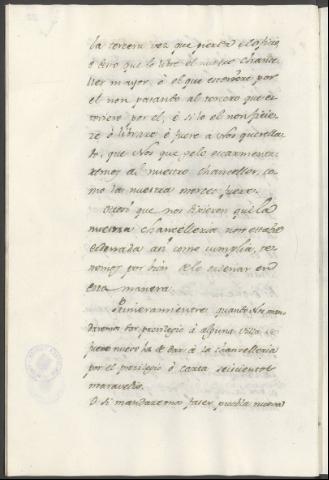 la tercera vez que pierda el oficio
è otro que lo libre el nuestro Chance-
ller mayor, ò el que estoviere por
el non parando al tercero que es-
toviere por el, è si lo el non ficie-
re ò librare è fuere à Nos querella-
do, que Nos que gelo escarmenta-
remos al nuestro Chanceller, co-
mo la nuestra merced fuere.
Otrosi que nos dixieron que la
nuestra Chancelleria non estaba
ordenada asi como cumplia, te-
nemos por bien de lo ordenar en
esta manera.
Primeramientre quando Nos man-
daremos por privilegio à alguna Villa
fuero nuevo ha de dar à la Chancelleria
por el privilegio ò carta seiscientos
maravedis.
O si mandaremos facer puebla nueva